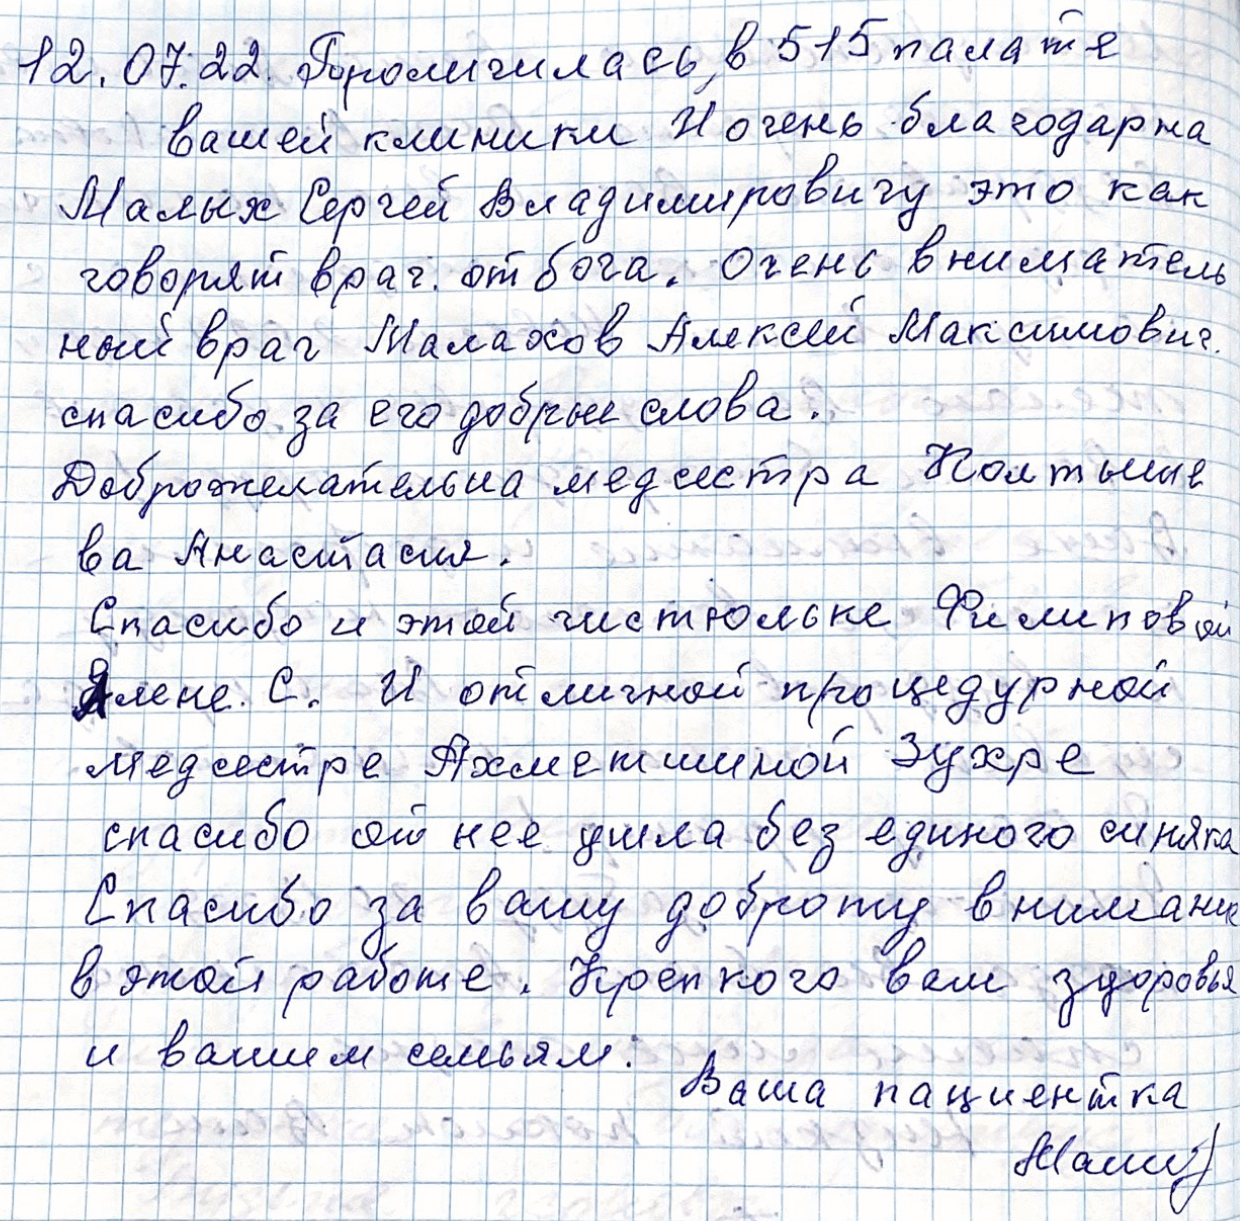 12.07.22. Прополичилась, в 515 палате
вашей клиники И очень благодарна
Малых Сергей Владимировичу это как
говорят врач. от бога. Очень вниматель
ный врач Малахов Алексей Максимович.
спасибо за его добрые слова.
Доброжелательна медсестра Колтыше
ва Анастасия.
Спасибо и этой чистюльке Филиповой
Алене. С. И отличной процедурной
медсестре Ахметшиной Зухре
спасибо от нее ушла без единого синяка
Спасибо за вашу доброту внимание
в этой работе. Крепкого вам здоровья
и вашим семьям.
Ваша пациентка